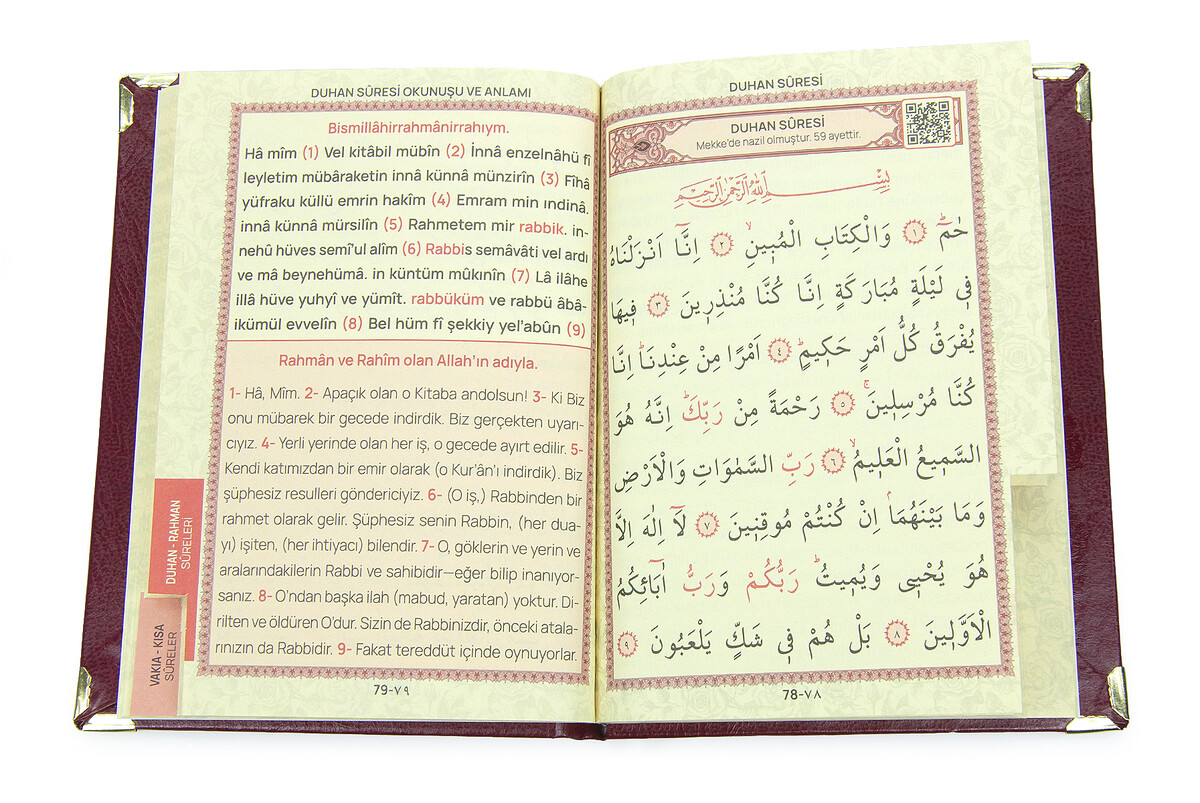 DUHAN SÛRESİ
DUHAN SÛRESİ
Mekke'de nazil olmuştur. 59 ayettir.
بِسْمِ اللّٰهِ الرَّحْمٰنِ الرَّحِيمِ
حٰمٓ ۝١ وَالْكِتَابِ الْمُبٖينِۙ ۝٢ اِنَّٓا اَنْزَلْنَاهُ
فٖي لَيْلَةٍ مُبَارَكَةٍ اِنَّا كُنَّا مُنْذِرٖينَ ۝٣ فٖيهَا
يُفْرَقُ كُلُّ اَمْرٍ حَكٖيمٍۙ ۝٤ اَمْرًا مِنْ عِنْدِنَاۜ اِنَّا
كُنَّا مُرْسِلٖينَۚ ۝٥ رَحْمَةً مِنْ رَبِّكَۜ اِنَّهُ هُوَ
السَّمٖيعُ الْعَلٖيمُۙ ۝٦ رَبِّ السَّمٰوَاتِ وَالْاَرْضِ
وَمَا بَيْنَهُمَاۢ اِنْ كُنْتُمْ مُوقِنٖينَ ۝٧ لَٓا اِلٰهَ اِلَّا
هُوَ يُحْيٖي وَيُمٖيتُۜ رَبُّكُمْ وَرَبُّ اٰبَٓائِكُمُ
الْاَوَّلٖينَ ۝٨ بَلْ هُمْ فٖي شَكٍّ يَلْعَبُونَ ۝٩
78-٧٨
DUHAN SÛRESİ OKUNUŞU VE ANLAMI
Bismillâhirrahmânirrahıym.
Hâ mîm (1) Vel kitâbil mübîn (2) İnnâ enzelnâhü fî
leyletim mübâraketin innâ künnâ münzirîn (3) Fîhâ
yüfraku küllü emrin hakîm (4) Emram min ındinâ.
innâ künnâ mürsilîn (5) Rahmetem mir rabbik. in-
nehû hüves semî'ul alîm (6) Rabbis semâvâti vel ardı
ve mâ beynehümâ. in küntüm mûkınîn (7) Lâ ilâhe
illâ hüve yuhyî ve yümît. rabbüküm ve rabbü âbâ-
ikümül evvelîn (8) Bel hüm fî şekkiy yel'abûn (9)
Rahmân ve Rahîm olan Allah'ın adıyla.
1- Hâ, Mîm. 2- Apaçık olan o Kitaba andolsun! 3- Ki Biz
onu mübarek bir gecede indirdik. Biz gerçekten uyarı-
cıyız. 4- Yerli yerinde olan her iş, o gecede ayırt edilir. 5-
Kendi katımızdan bir emir olarak (o Kur'ân'ı indirdik). Biz
şüphesiz resulleri göndericiyiz. 6- (O iş,) Rabbinden bir
rahmet olarak gelir. Şüphesiz senin Rabbin, (her dua-
yı) işiten, (her ihtiyacı) bilendir. 7- O, göklerin ve yerin ve
aralarındakilerin Rabbi ve sahibidir—eğer bilip inanıyor-
sanız. 8- O'ndan başka ilah (mabud, yaratan) yoktur. Di-
rilten ve öldüren O'dur. Sizin de Rabbinizdir, önceki atala-
rınızın da Rabbidir. 9- Fakat tereddüt içinde oynuyorlar.
79-٧٩
DUHAN - RAHMAN
SÛRELERİ
VAKIA - KISA
SÛRELER